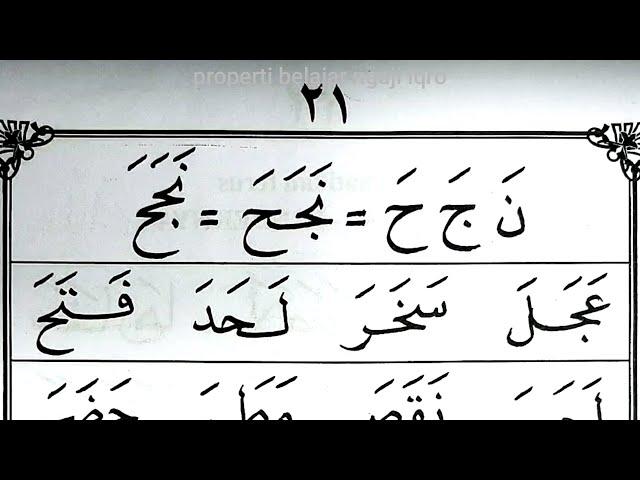 properti belajar ngaji iqro
٢١
نَ جَ حَ = نَجَحَ = نَجَحَ
عَجَلَ سَخَرَ لَحَدَ فَتَحَ
نَقَصَ حَضَرَ